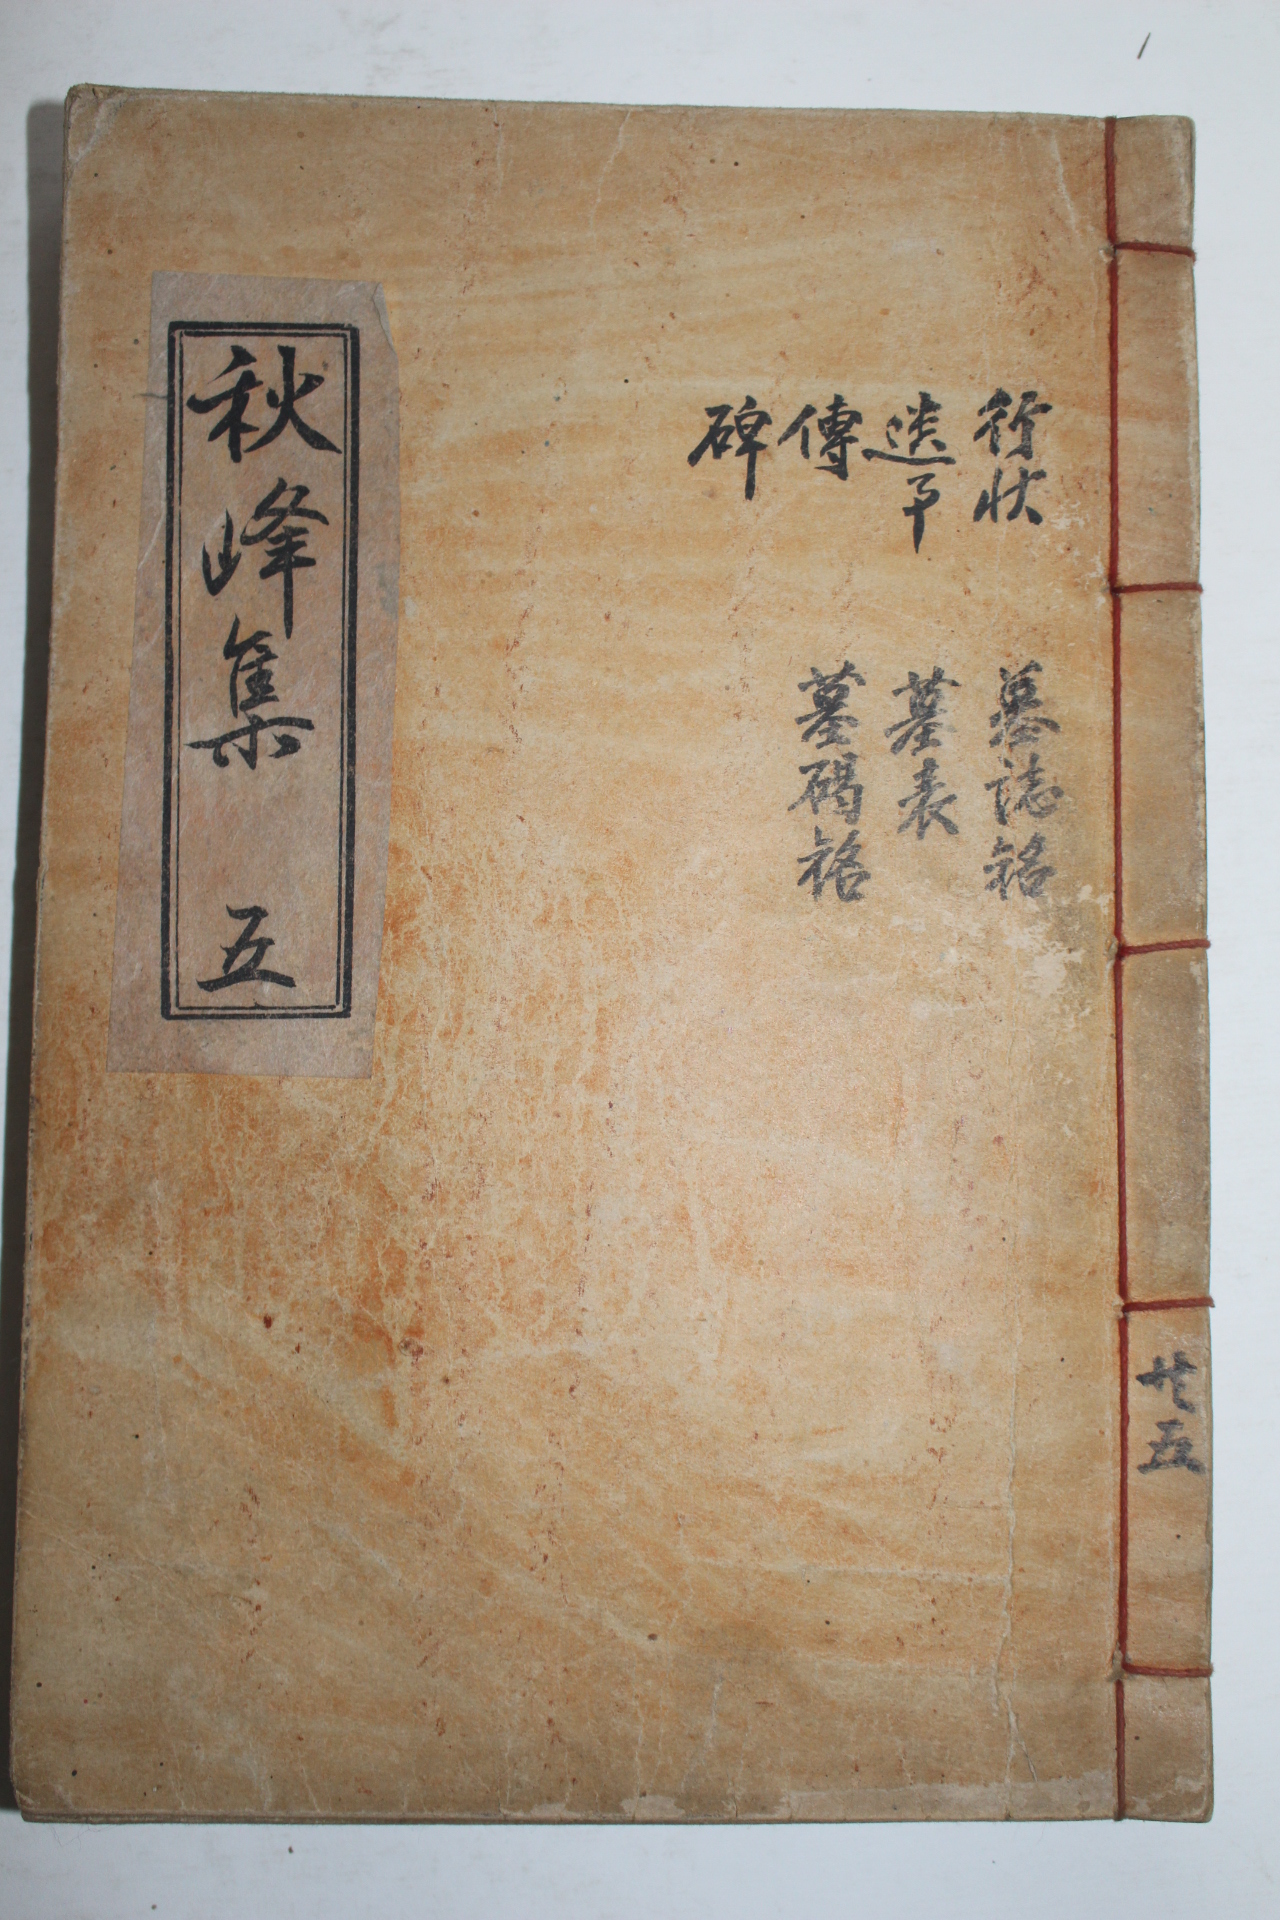 共五
行状
遺事
傳
碑
墓誌銘
墓表
墓碣銘
秋峰集 五